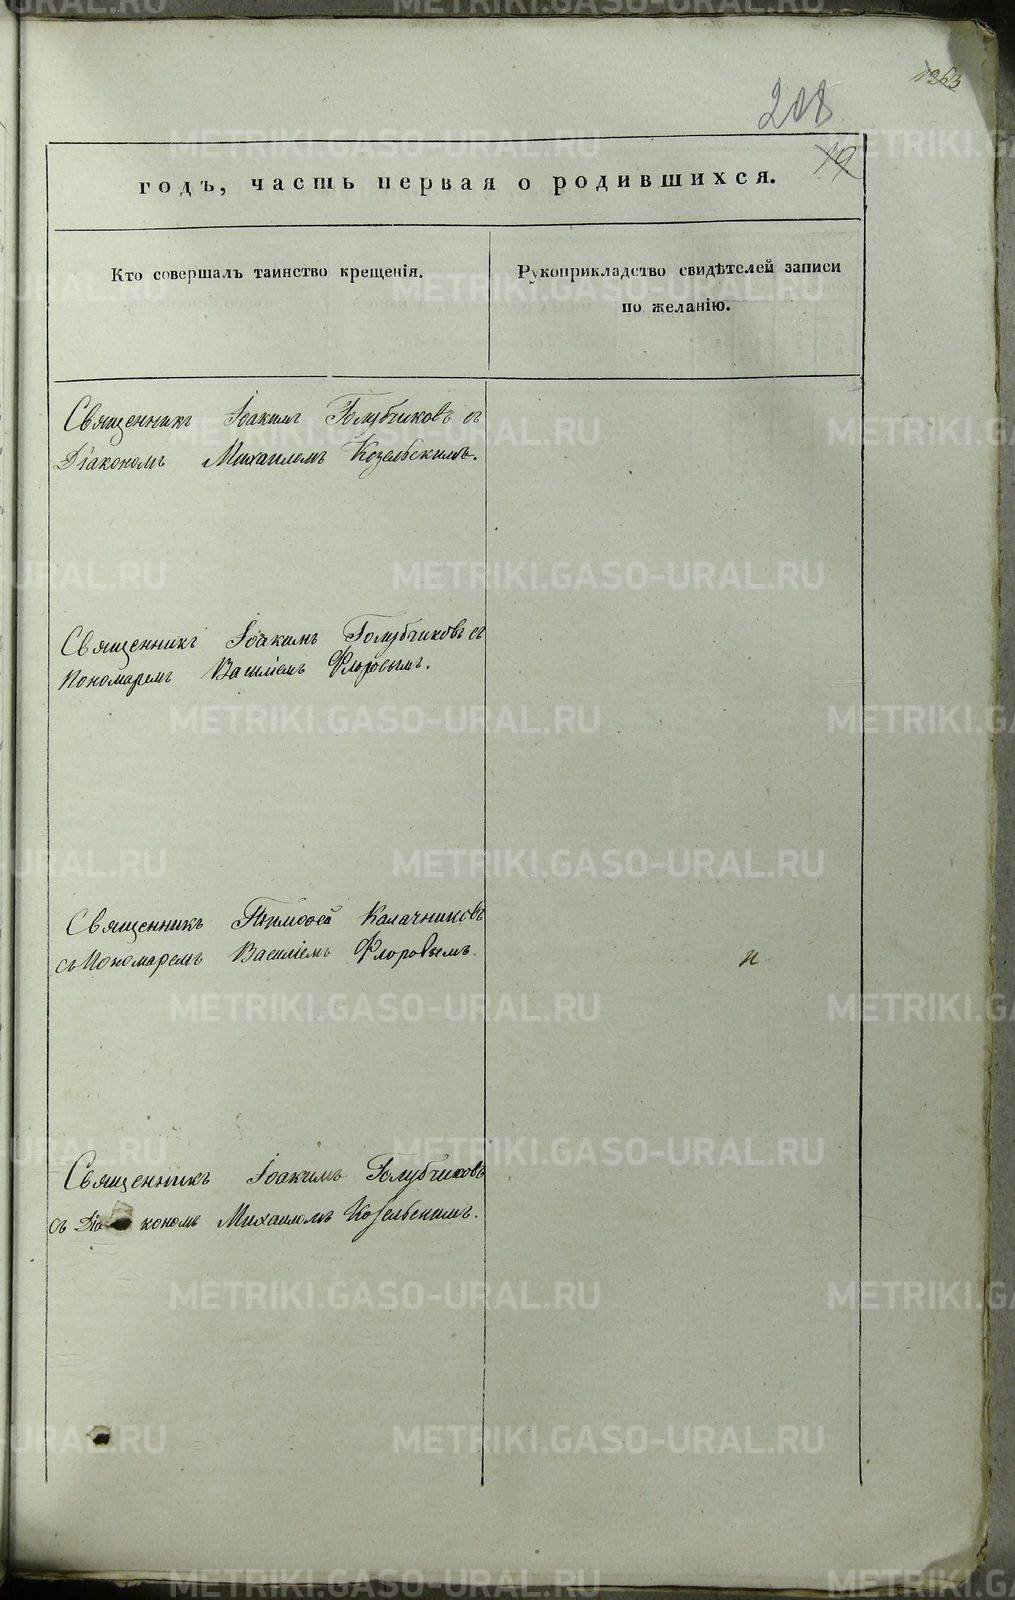 1263
208
19
годъ, часть первая о родившихся.
Кто совершалъ таинство крещенія.
Рукоприкладство свидѣтелей записи
по желанію.
Священникъ Іоакимъ Голубчиковъ съ
Діакономъ Михаиломъ Козельскимъ.
Священникъ Іоакимъ Голубчиковъ съ
Пономаремъ Василіемъ Флоровымъ.
Священникъ Тимофей Калачниковъ
съ Пономаремъ Василіемъ Флоровымъ.
и
Священникъ Іоакимъ Голубчиковъ
съ Діакономъ Михаиломъ Козельскимъ.
METRIKI.GASO-URAL.RU